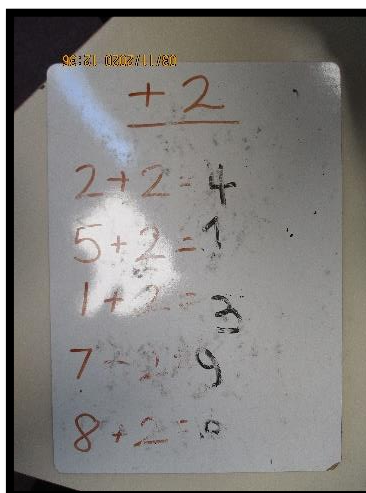 03/11/2020 12:36
+2
2+2=4
5+2=7
1+2=3
7+2=9
8+2=